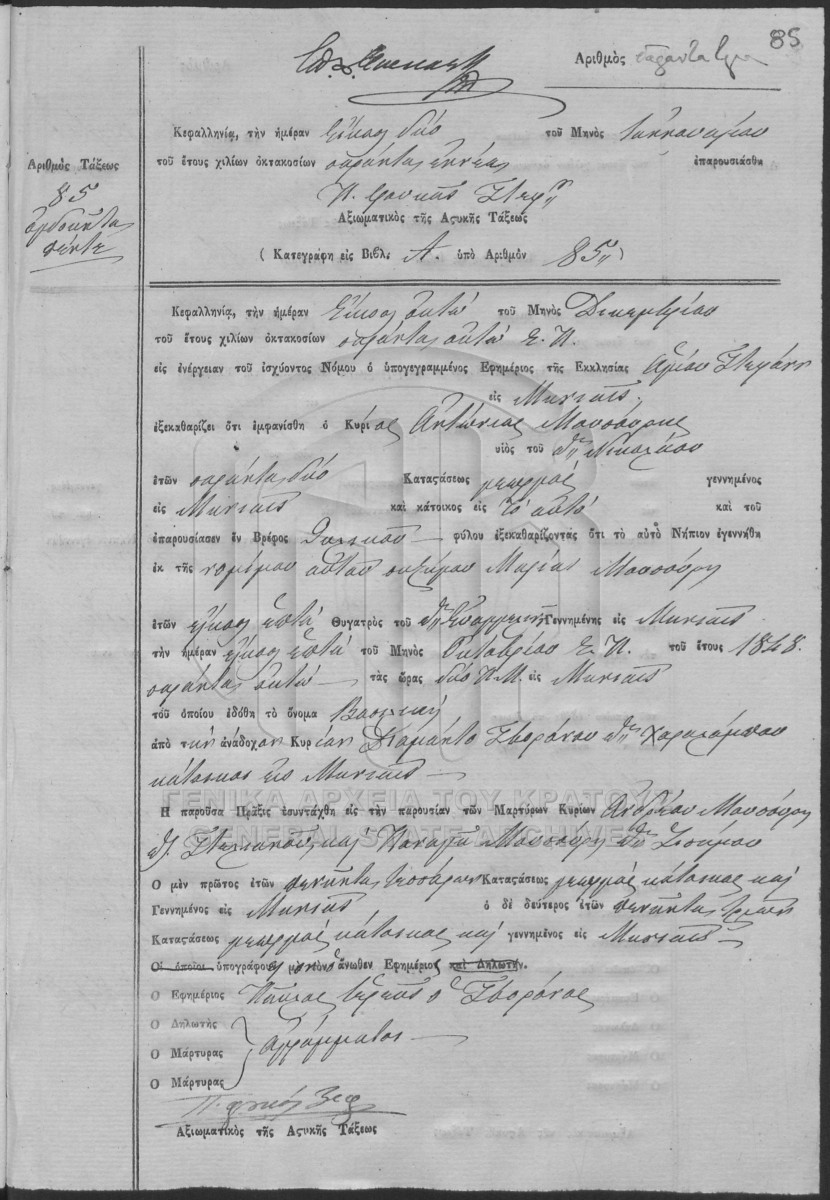 85
Ἀριθμὸς
Κεφαλληνίᾳ, τὴν ἡμέραν εἴκοσι δύο τοῦ Μηνὸς Ἰαννουαρίου
τοῦ ἔτους χιλίων ὀκτακοσίων σαράντα ἐννέα ἐπαρουσιάσθη
Ἀξιωματικὸς τῆς Ἀϛυκῆς Τάξεως
( Κατεγράφη εἰς Βιβλ: Α. ὑπὸ Ἀριθμὸν 85 )
Ἀριθμὸς Τάξεως
85
ὀγδοῆντα
πέντε
Κεφαλληνίᾳ, τὴν ἡμέραν εἴκοσι ὀκτώ τοῦ Μηνὸς Δικεμβρίου
τοῦ ἔτους χιλίων ὀκτακοσίων σαράντα ὀκτώ Ε. Π.
εἰς ἐνέργειαν τοῦ ἰσχύοντος Νόμου ὁ ὑπογεγραμμένος Ἐφημέριος τῆς Ἐκκλησίας Ἁγίου
εἰς Μινιαῖς
ἐξεκαθαρίζει ὅτι ἐμφανίσθη ὁ Κύριος Ἀντώνιος Μουσούρης
υἱὸς τοῦ Νικολάου
ἐτῶν σαράντα δύο Καταϛάσεως γεωργός γεννημένος
εἰς Μινιαῖς καὶ κάτοικος εἰς τό αὐτό καὶ τοῦ
ἐπαρουσίασεν ἓν Βρέφος Θηλικοῦ φύλου ἐξεκαθαρίζοντας ὅτι τὸ αὐτὸ Νήπιον ἐγεννήθη
ἐκ τῆς νομίμου αὐτοῦ συζύγου Μαρίας Μουσούρη
ἐτῶν εἴκοσι ἑπτά Θυγατρὸς τοῦ Γεννημένης εἰς Μινιαῖς
τὴν ἡμέραν εἴκοσι ἑπτά τοῦ Μηνὸς Ὀκτωβρίου Ε. Π. τοῦ ἔτους 1848.
σαράντα ὀκτώ τὰς ὥρας δύο Π.Μ. εἰς Μινιαῖς
τοῦ ὁποίου ἐδόθη τὸ ὄνομα Βασιλική
ἀπὸ τὴν ἀνάδοχον Κυρίαν Διαμάντο Σβορόνου Χαραλάμπου
κάτοικος εἰς Μινιαῖς
Ἡ παροῦσα Πρᾶξις ἐσυντάχθη εἰς τὴν παρουσίαν τῶν Μαρτύρων Κυρίων Ἀνδρέου Μουσούρη
καὶ Παναγῆ Μουσούρη
Ὁ μὲν πρῶτος ἐτῶν πενῆντα τεσσάρων Καταϛάσεως γεωργός κάτοικος καὶ
Γεννημένος εἰς Μινιαῖς ὁ δὲ δεύτερος ἐτῶν πενῆντα τριῶν
Καταϛάσεως γεωργός κάτοικος καὶ γεννημένος εἰς Μινιαῖς
Οἱ ὁποῖοι ὑπογράφουν ἄνωθεν Ἐφημέριος καὶ Δηλωτήν.
Ὁ Ἐφημέριος ἱερεύς ὁ Σβορόνος
Ὁ Δηλωτὴς
Ὁ Μάρτυρας ἀγράμματοι
Ὁ Μάρτυρας
Ἀξιωματικὸς τῆς Ἀϛυκῆς Τάξεως
ΓΕΝΙΚΑ ΑΡΧΕΙΑ ΤΟΥ ΚΡΑΤΟΥΣ
GENERAL STATE ARCHIVES